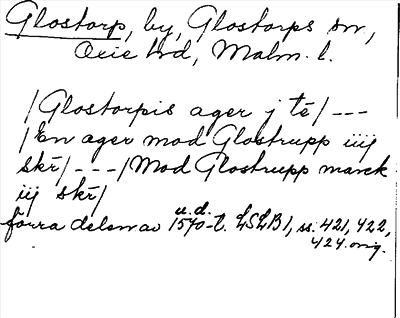 Glostorp, by, Glostorps sn,
Oxie hd, Malm. l.
/Glostorpis ager j tē/ ---
/En ager mod Glostrupp iiij
skr̄/ --- /Mod Glostrupp marck
iij skr̄/
förra delen av u.d. 1570-t. LSLB1, ss. 421, 422,
424. orig.